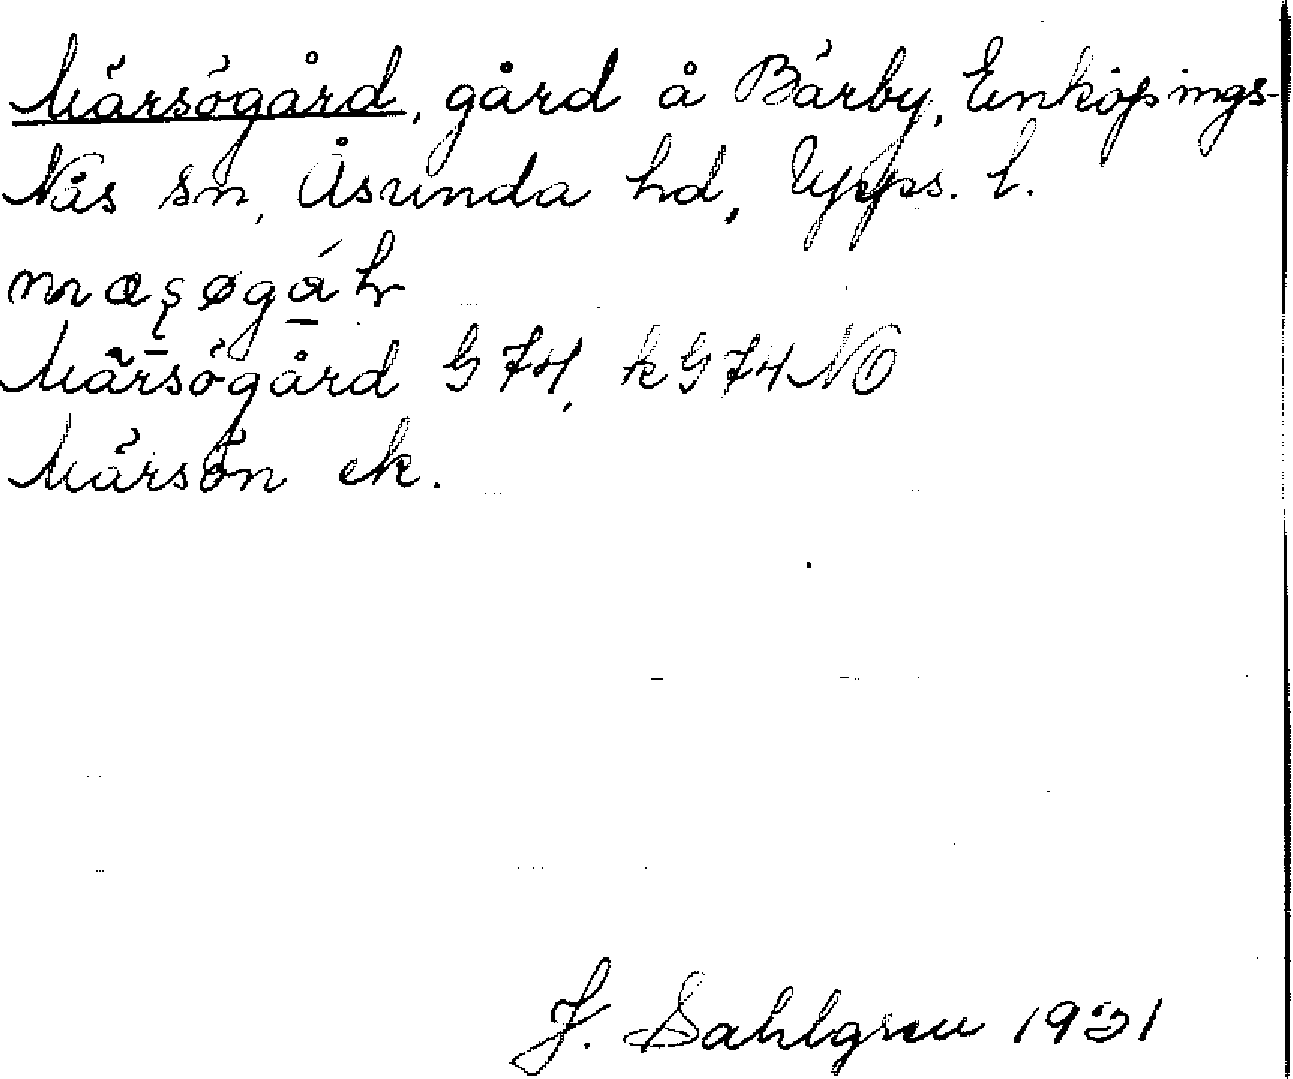 Märsögård, gård å Bärby, Enköpings-
Näs sn, Åsunda hd, Upps. l.
Märsögård G 74, k G 74 NO
Märsön ek.
J. Sahlgren 1931